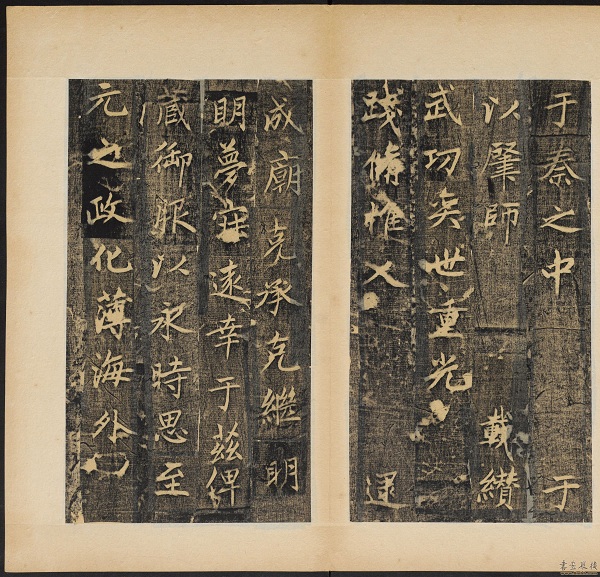 于秦之中 于
以肇師 載纘
武功奕世重光
踐脩惟乂 逮
成廟克承克繼明
明夢寐遠幸于茲俾
藏御服以永時思至
元之政化薄海外